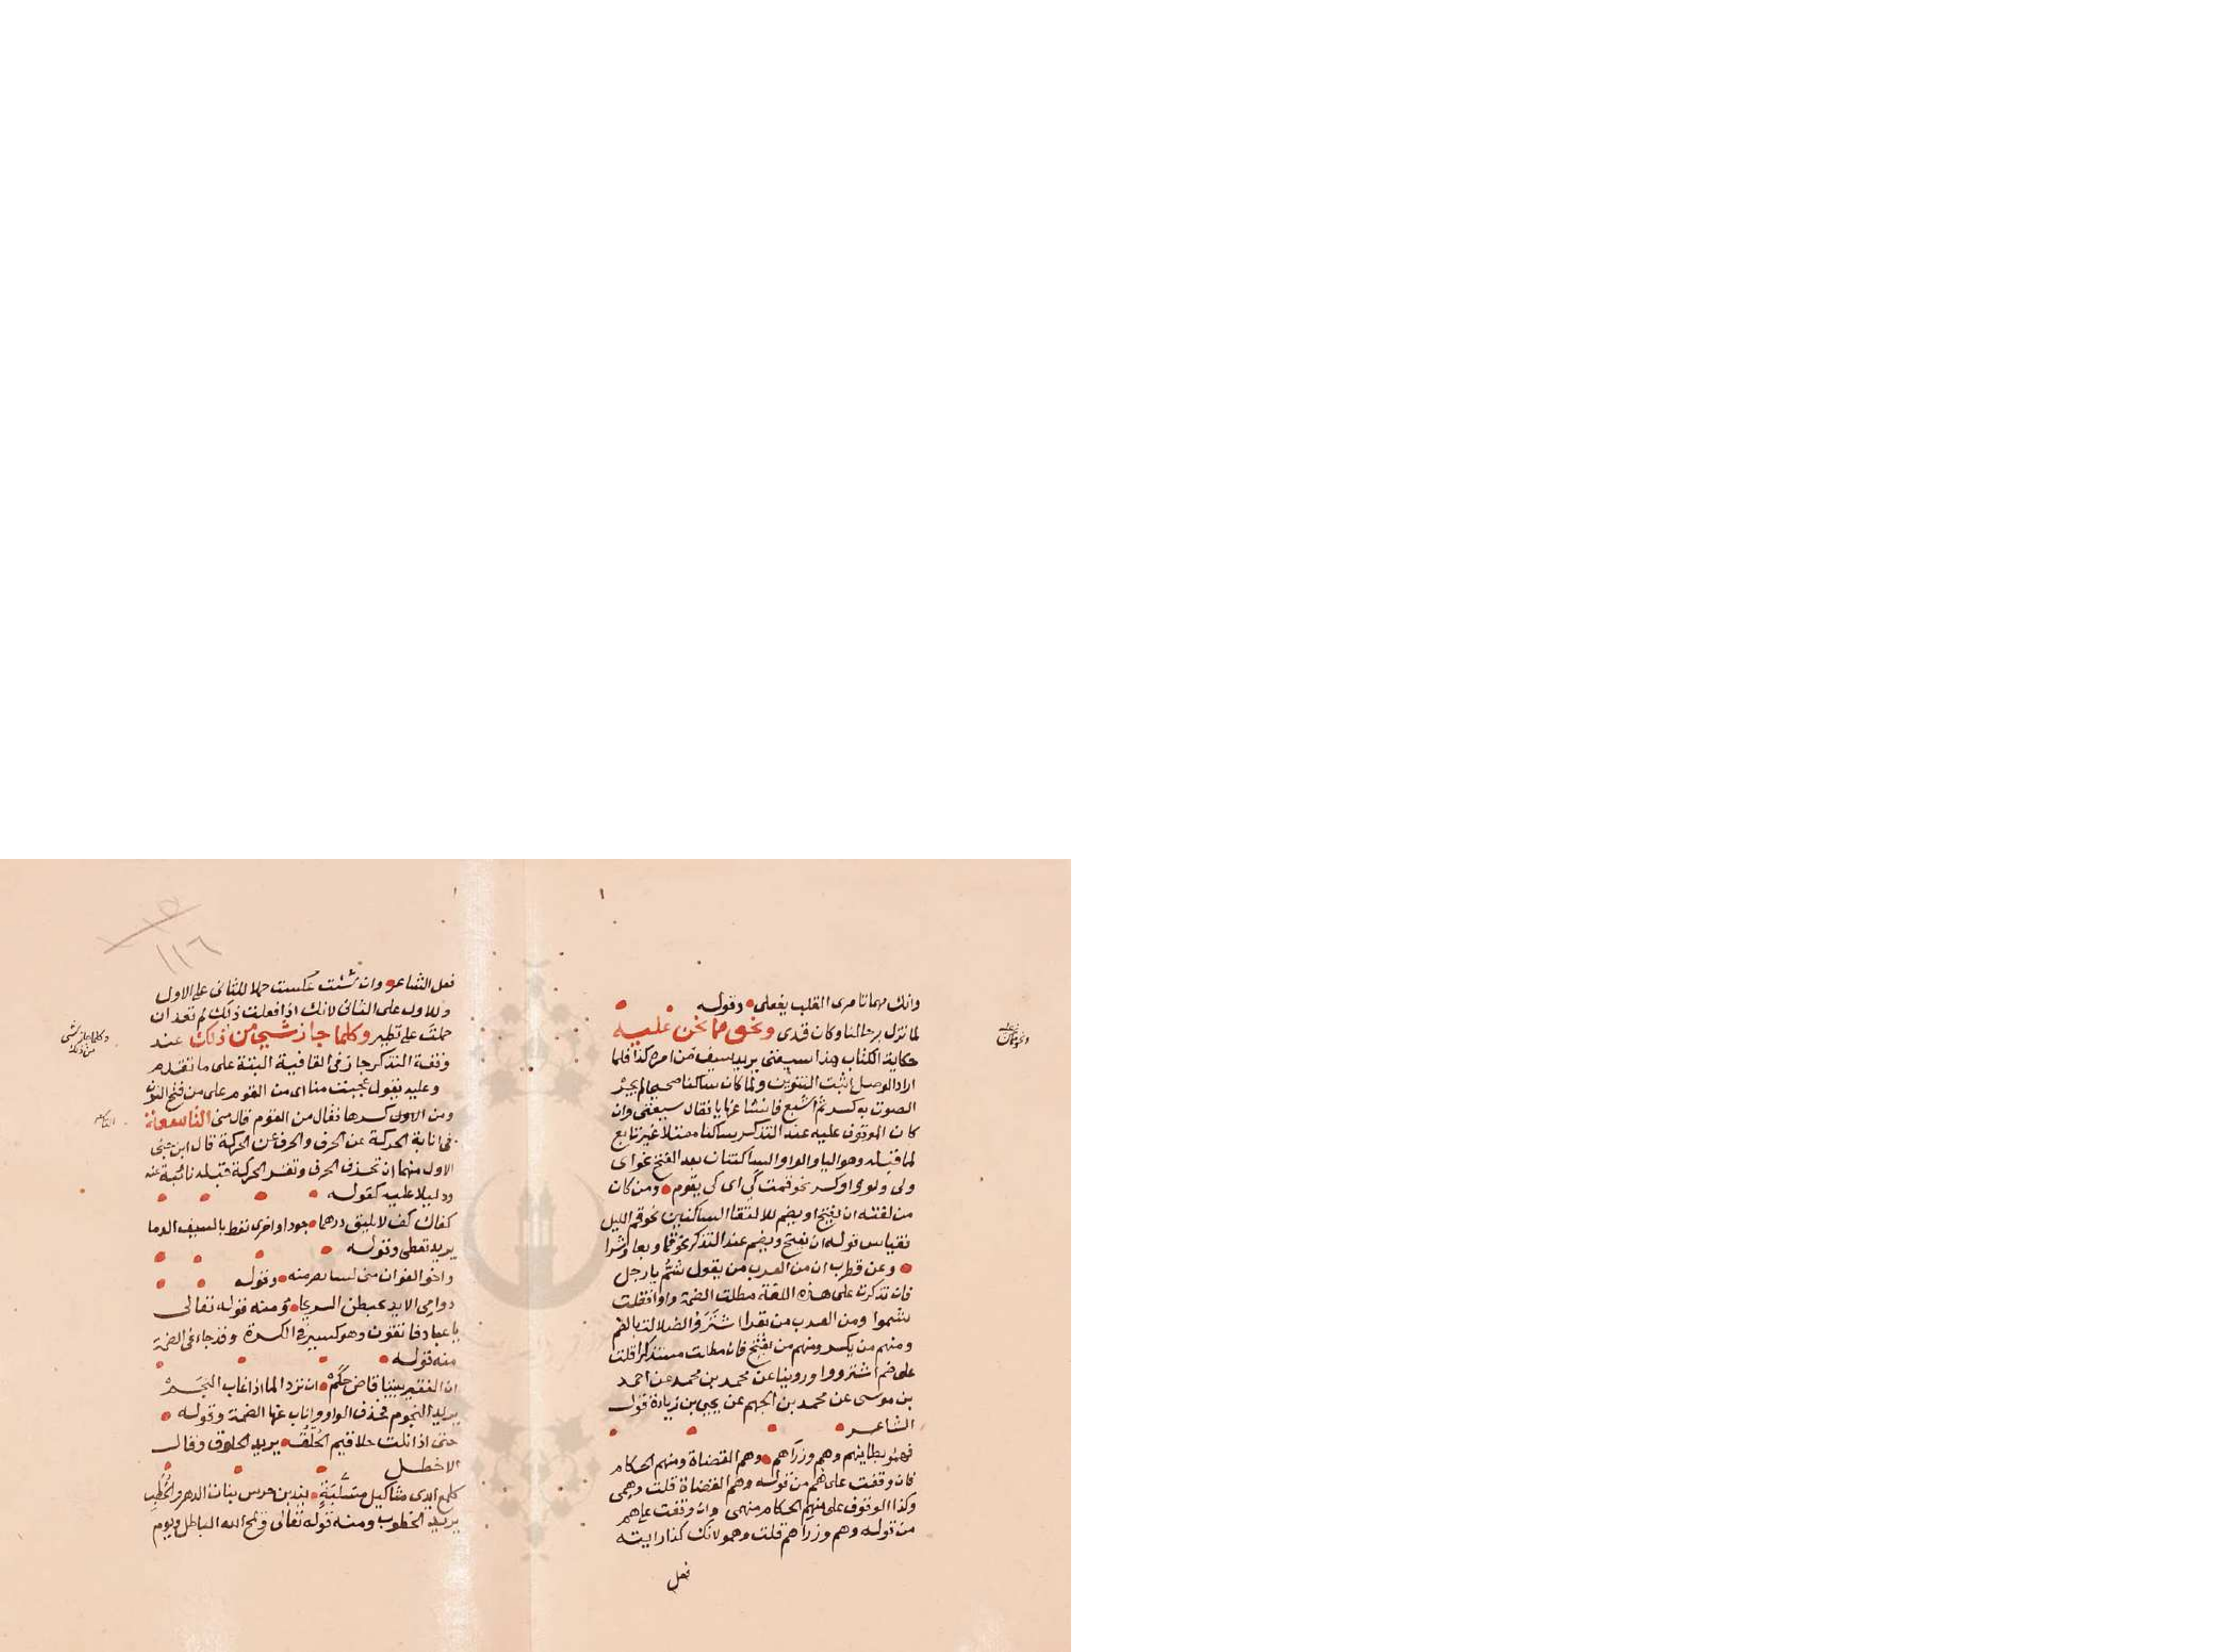 وانك مهما تامرى القلب يفعلى وقوله
لما تزل برحالنا وكان قدى ونحو ما نحن عليه
حكاية الكتاب هذا سيفنى يريد سيف من امره كذا فلما
اراد الوصل اثبت التنوين ولما كان ساكنا صحيحا لم يجر
الصوت به كسر ثم اشبع فانشا عنها يا فقال سيفنى وان
كان الموقوف عليه عند التذكر ساكنا معتلا غير تابع
لما قبله وهو اليا والواو الساكنتان بعد الفتح نحو اى
ولى ولو واو كسر نحو قمت كي اى كى يقوم ومن كان
من لغته ان يفتح او يضم لالتقا الساكنين نحو قم الليل
فقياس قوله ان يفتح ويضم عند التذكر نحو قما وبعا وشرا
وعن قطرب ان من العرب من يقول شم يا رجل
فان تذكرت على هذه اللغة مطلت الضمة واوا فقلت
شموا ومن العرب من يقرا اشتروا الضلالة بالضم
ومنهم من يكسر ومنهم من يفتح فان مطلت مستذكرا قلت
على ضم اشترووا وروينا عن محمد بن محمد عن احمد
بن موسى عن محمد بن الجهم عن يحيى بن زياد قول
الشاعر
فهمو بطاينهم وهم وزراهم وهم القضاة ومنهم الحكام
فان وقفت على هم من قوله وهم القضاة قلت وهمى
وكذا الوقوف على منهم الحكام منهمى وان وقفت على هم
من قوله وهم وزراهم قلت وهمو لانك كذا رايته
فعل
فعل الشاعر وان شئت عكست حملا للثانى على الاول
وللاول على الثانى لانك اذا فعلت ذلك لم تعد ان
حملت على نظير وكلما جاز شي من ذلك عند
وقفة التذكر جاز فى القافية البتة على ما تقدم
وعليه يقول عجبت منا اى من القوم على من فتح النون
ومن الاول كسرها فقال من القوم قال منى التاسعة
فى انابة الحركة عن الحرف والحرف عن الحركة قال ابن جنى
الاول منهما ان تحذف الحرف وتقر الحركة قبله نائبة عنه
ودليلا عليه كقوله
كفاك كف لا يليق درهما جودا واخرى تعط بالسيف الدما
يريد تعطى وقوله
واخو الغوان متى يشا يصرمنه وقوله
دوامى الايد يخبطن السريحا ومنه قوله تعالى
يا عباد فاتقون وهو كثير فى الكسرة وقد جاء فى الضمة
منه قوله
ان الفقير بيننا قاض حكم ان ترد الما اذا غاب النجم
يريد النجوم فحذف الواو واناب عنها الضمة وقوله
حتى اذا بلت حلاقيم الحلق يريد الحلوق وقال
الاخطل
كلمع ايدى مثاكيل مسلبة يندبن ضرس بنات الدهر والخطب
يريد الخطوب ومنه قوله تعالى ويمح الله الباطل ويوم